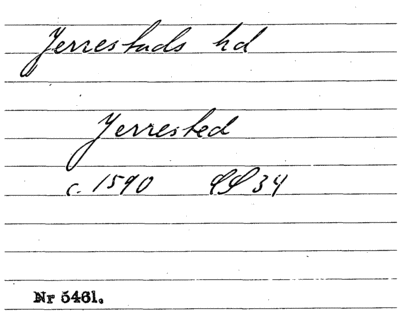 Jerrestads hd
Jerrested
c. 1590 SS 34
Nr 5461.